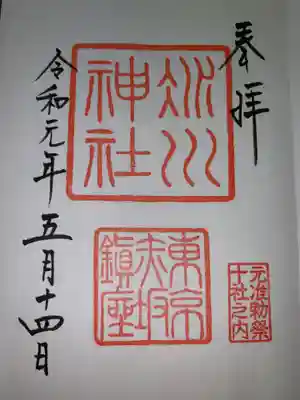 奉拝
氷川
神社
東京
赤坂
鎮座
元准勅祭
十社之内
令和元年五月十四日